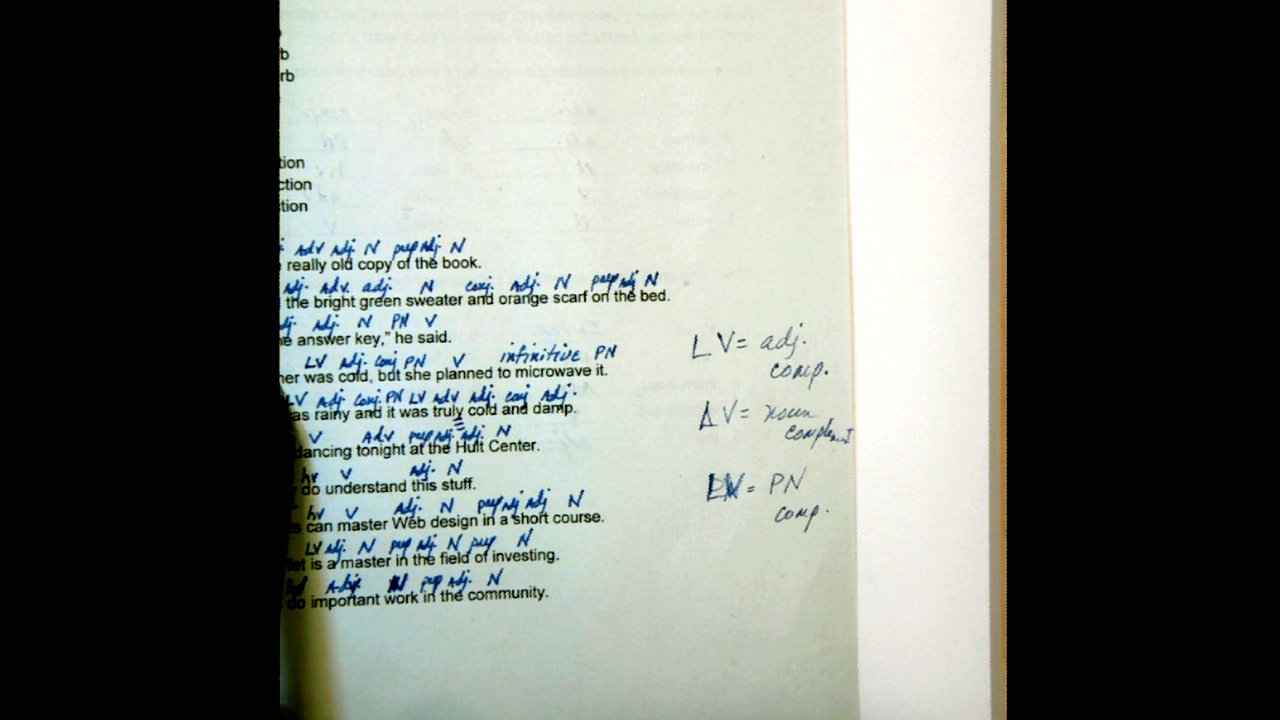 b
rb
tion
ction
tion
Adv Adj. N prep Adj. N
really old copy of the book.
Adj. Adv. adj. N conj. Adj. N prep Adj N
the bright green sweater and orange scarf on the bed.
dj. Adj. N PN V
e answer key," he said.
LV adj. conj PN V infinitive PN
ner was cold, but she planned to microwave it.
LV Adj. Conj. PN LV Adv Adj. conj Adj.
as rainy and it was truly cold and damp.
V Adv prep Adj. Adj. N
dancing tonight at the Hult Center.
hv V Adj. N
do understand this stuff.
hv V Adj. N prep Adj adj N
s can master Web design in a short course.
LV adj. N prep adj. N prep N
is a master in the field of investing.
prep Adj. N
do important work in the community.
LV = adj.
comp.
V = noun
complement
= PN
comp.